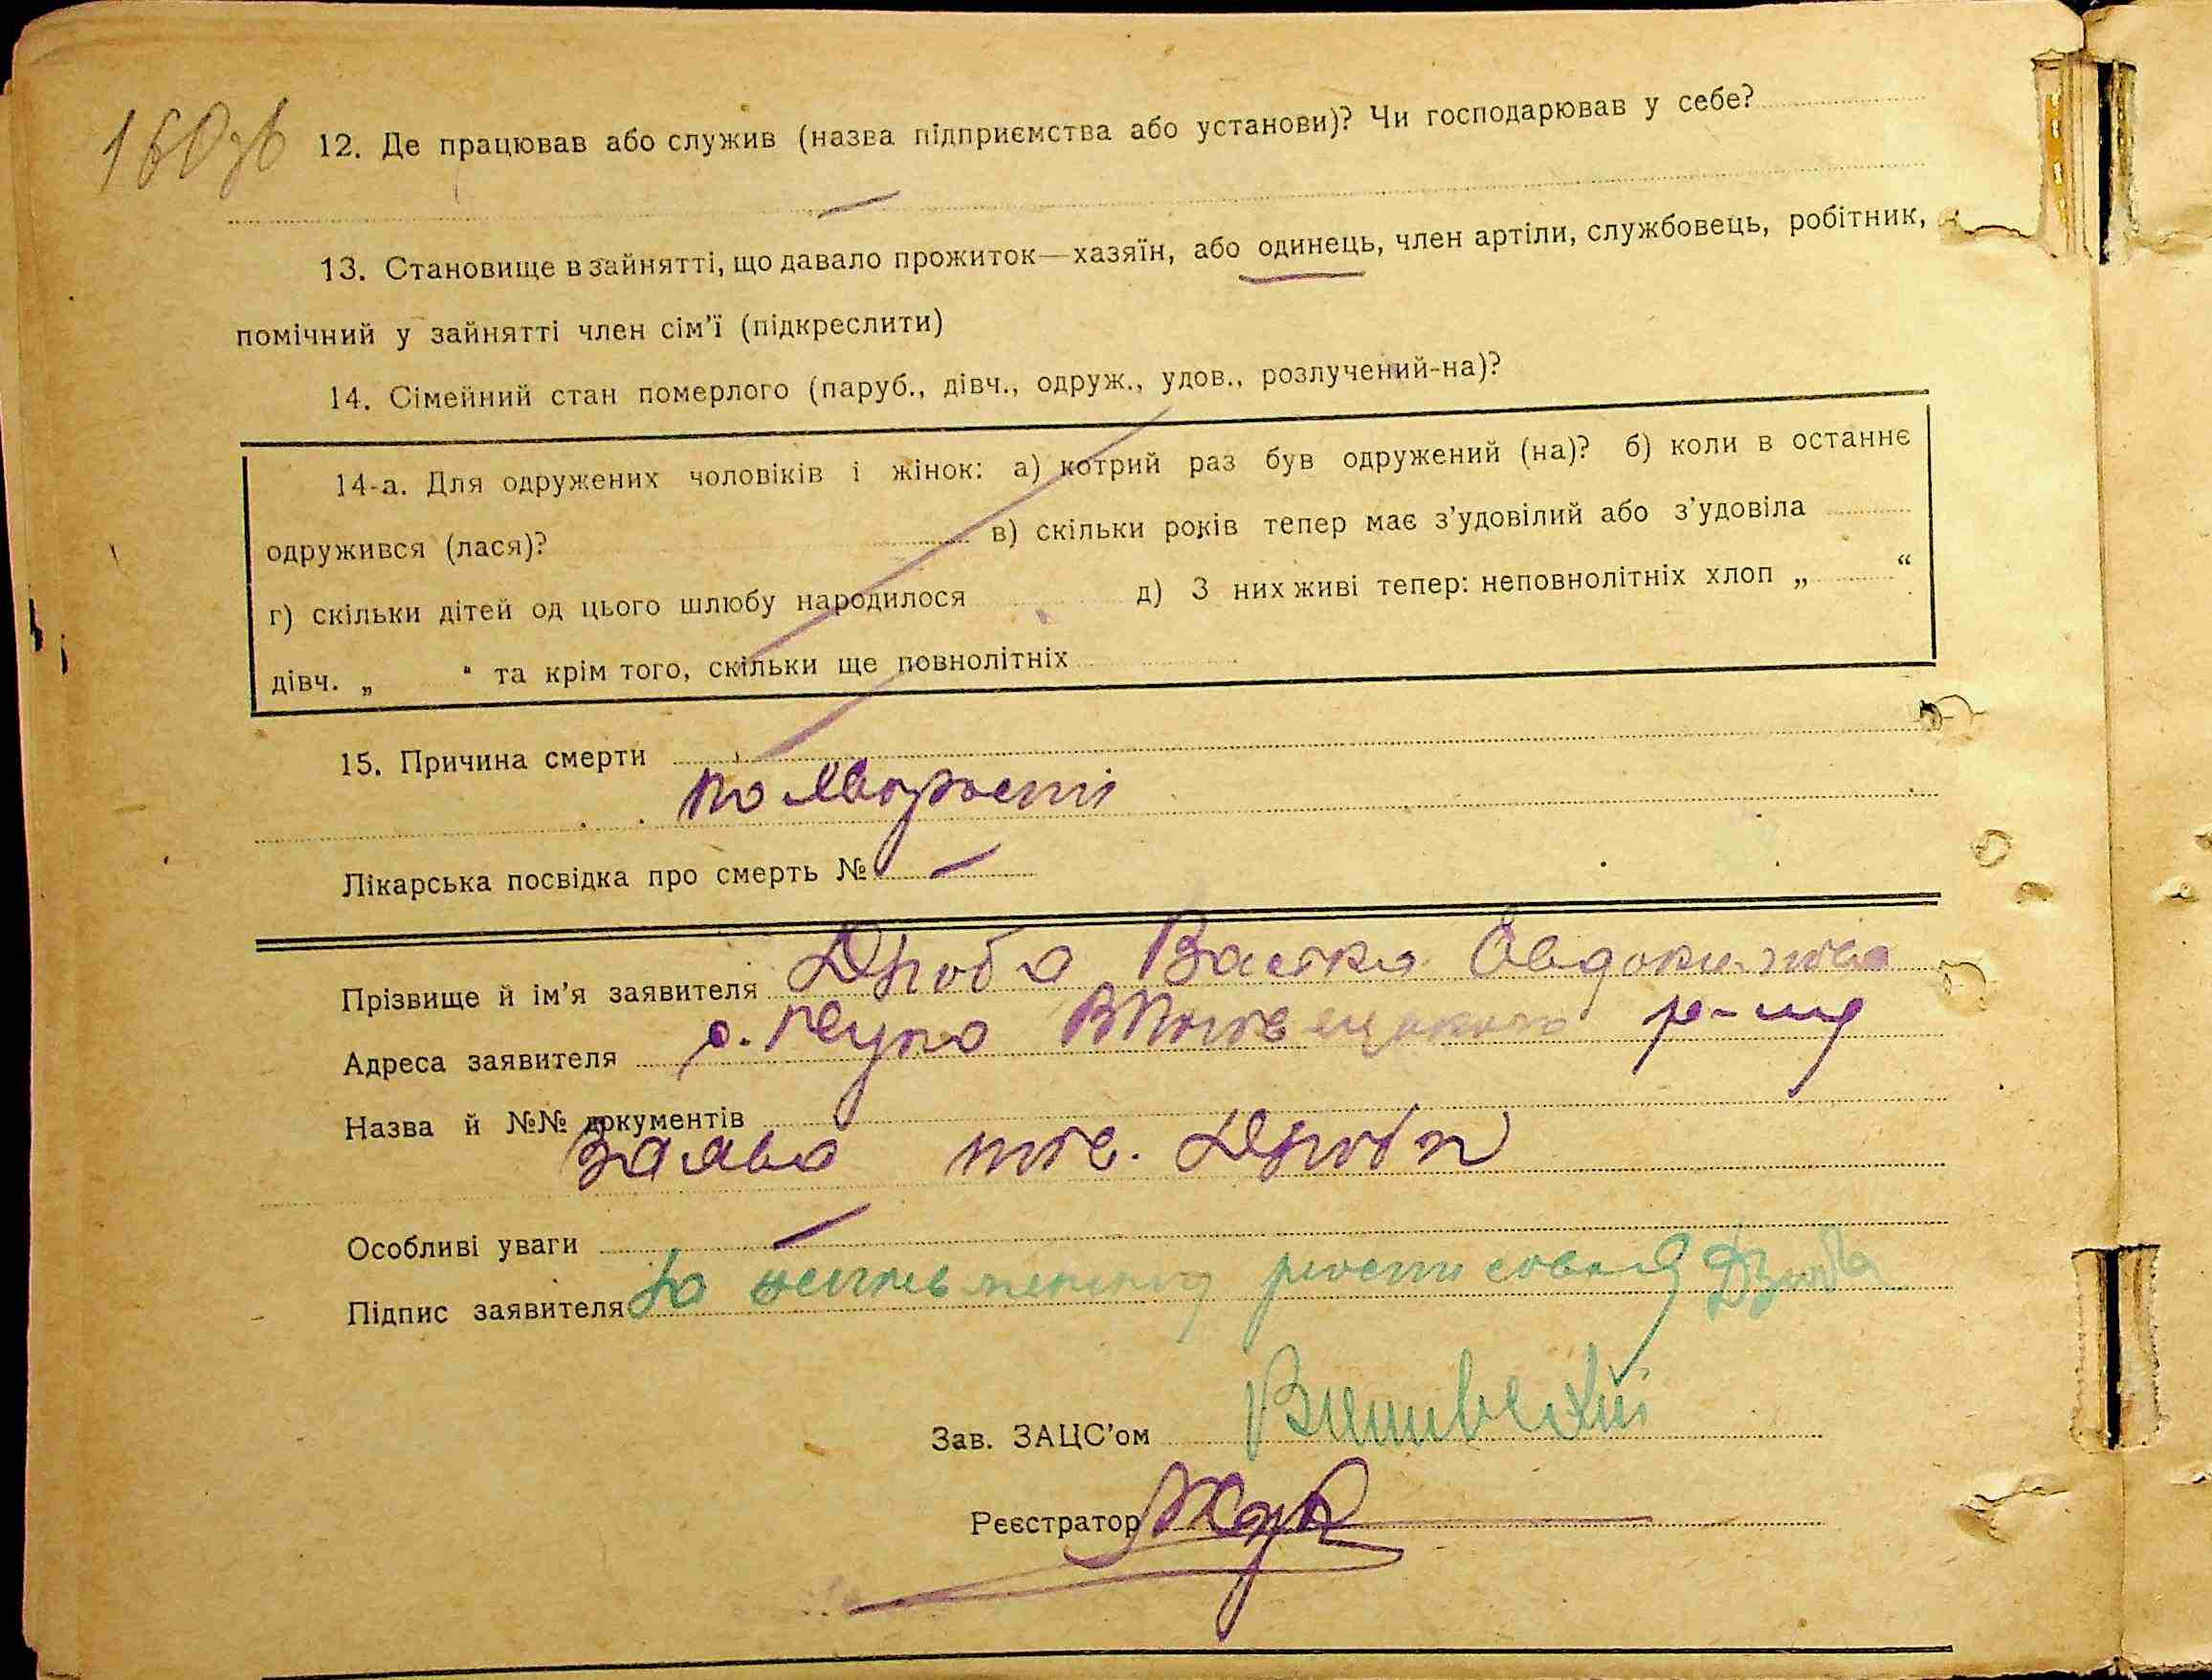 160зв
12. Де працював або служив (назва підприємства або установи)? Чи господарював у себе?
13. Становище в зайнятті, що давало прожиток—хазяїн, або одинець, член артіли, службовець, робітник,
помічний у зайнятті член сім'ї (підкреслити)
14. Сімейний стан померлого (паруб., дівч., одруж., удов., розлучений-на)?
14-а. Для одружених чоловіків і жінок: а) котрий раз був одружений (на)? б) коли в останнє
одружився (лася)? в) скільки років тепер має з'удовілий або з'удовіла
г) скільки дітей од цього шлюбу народилося д) З них живі тепер: неповнолітніх хлоп „ “
дівч. „ “ та крім того, скільки ще повнолітніх
15. Причина смерти
по
Лікарська посвідка про смерть №
Прізвище й ім'я заявителя Дроба
Адреса заявителя с. р-ну
Назва й №№ документів
Заява тов. Дроби
Особливі уваги
Підпис заявителя За
Зав. ЗАЦС'ом
Реєстратор